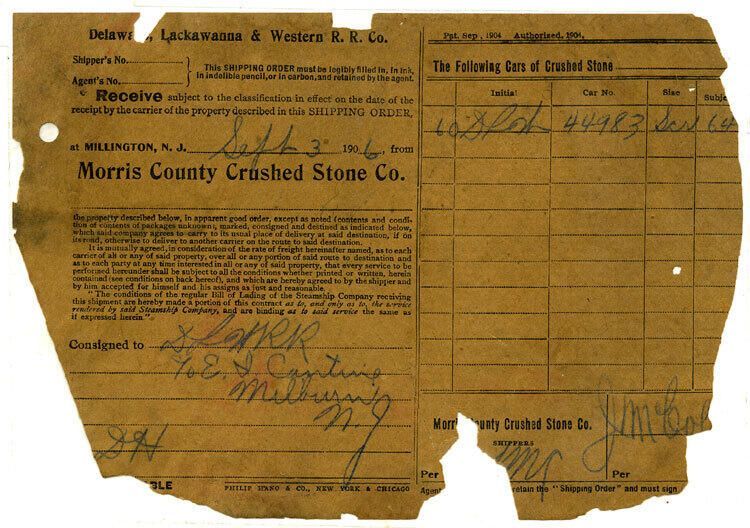 Delaware, Lackawanna & Western R. R. Co.
Shipper's No.
Agent's No.
This SHIPPING ORDER must be legibly filled in, in ink,
in indelible pencil, or in carbon, and retained by the agent.
Receive subject to the classification in effect on the date of the
receipt by the carrier of the property described in this SHIPPING ORDER,
at MILLINGTON, N. J. Sept 3 1906, from
Morris County Crushed Stone Co.
the property described below, in apparent good order, except as noted (contents and condi-
tion of contents of packages unknown), marked, consigned and destined as indicated below,
which said company agrees to carry to its usual place of delivery at said destination, if on
its road, otherwise to deliver to another carrier on the route to said destination.
It is mutually agreed, in consideration of the rate of freight hereinafter named, as to each
carrier of all or any of said property, over all or any portion of said route to destination and
as to each party at any time interested in all or any of said property, that every service to be
performed hereunder shall be subject to all the conditions whether printed or written, herein
contained (see conditions on back hereof), and which are hereby agreed to by the shipper and
by him accepted for himself and his assigns as just and reasonable.
"The conditions of the regular Bill of Lading of the Steamship Company receiving
this shipment are hereby made a portion of this contract as to, and only as to, the service
rendered by said Steamship Company, and are binding as to said service the same as
if expressed herein."
Consigned to
c/o E
Milburn
N.J
DH
BLE
PHILIP HANO & CO., NEW YORK & CHICAGO
Pat. Sep , 1904 Authorized, 1904,
The Following Cars of Crushed Stone
Initial Car No. Size Subje
60 44983 Scr 64
Morris County Crushed Stone Co.
SHIPPERS
J M
Per Per
Agent retain the "Shipping Order" and must sign